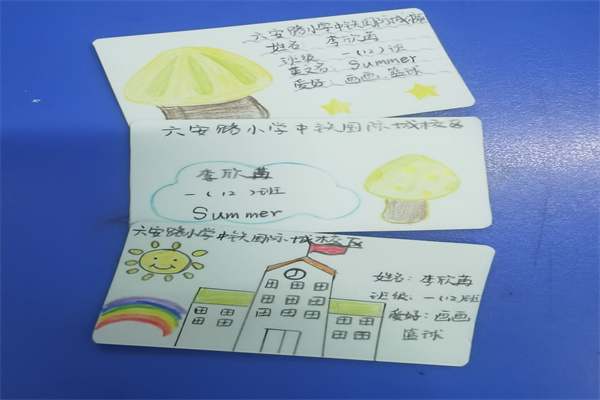 六安路小学中铁国际城校
姓名：李欣苒
班级 一（12）班
英文名：Summer
爱好：画画，篮球
六安路小学中铁国际城校区
李欣苒
一（12）班
Summer
六安路小学中铁国际城校区
姓名：李欣苒
班级：一（12）班
爱好：画画
篮球